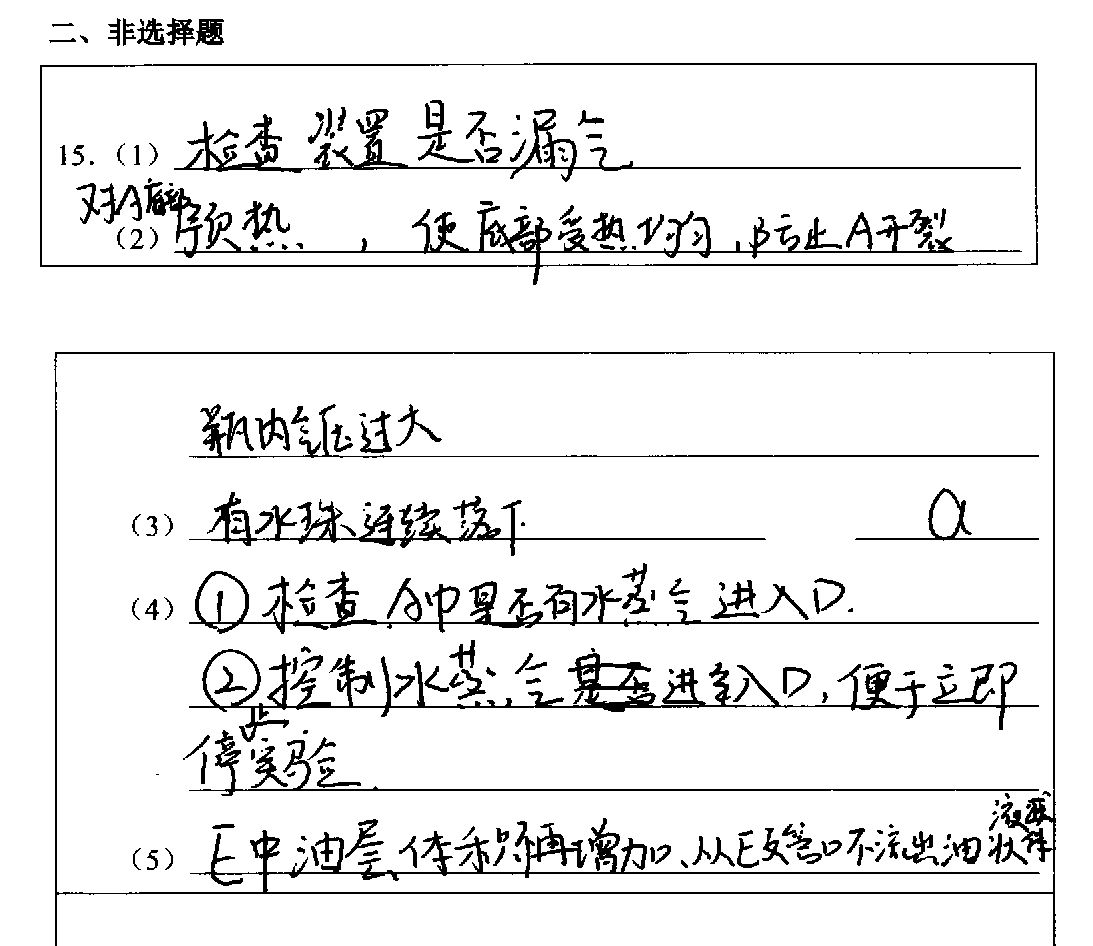 二、非选择题
15.（1）检查装置是否漏气
对A底部
（2）预热，使底部受热均匀，防止A开裂
瓶内气压过大
（3）有水珠连续落下 a
（4）①检查A中是否有水蒸气进入D.
②控制水蒸气进入D，便于立即
停止实验.
（5）E中油层体积不再增加、从E支管口不流出油状液体